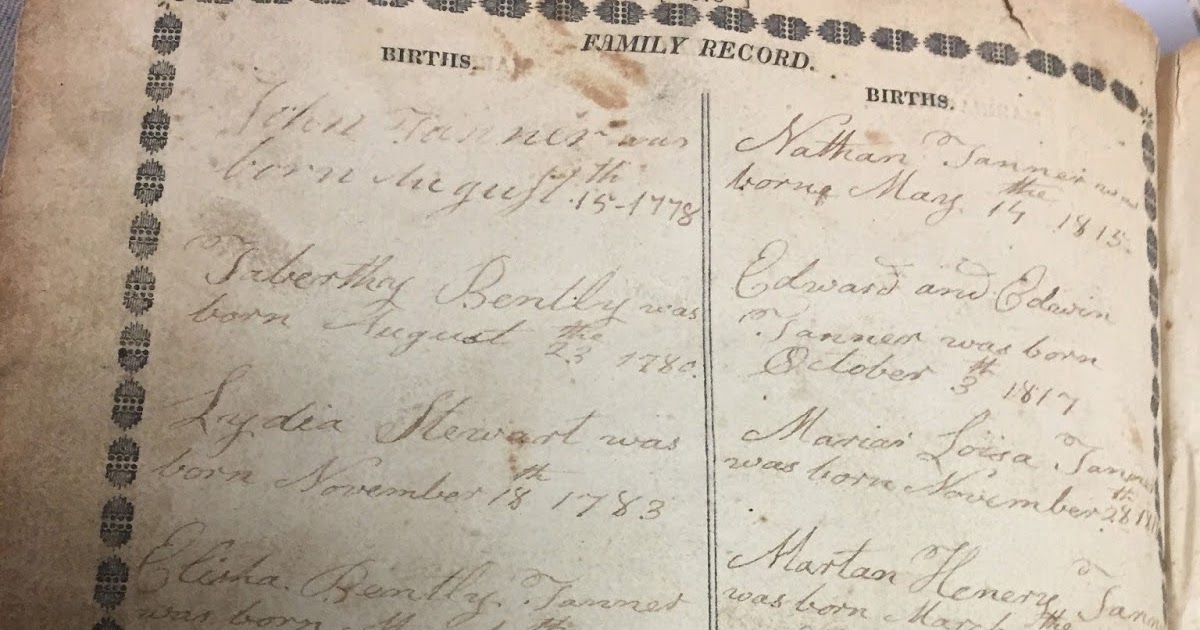 FAMILY RECORD.
BIRTHS.
John Tanner was
born August 15th-1778
Taberthy Bently was
born August the 23 1780.
Lydia Stewart was
born November 18th 1783
Elisha Bently Tanner
was born
BIRTHS.
Nathan Tanner was
born May the 14 1815.
Edward and Edwin
Tanner was born
October 3th 1817
Mariar Loisa
was born November 28th
Martan Henery
was born March the